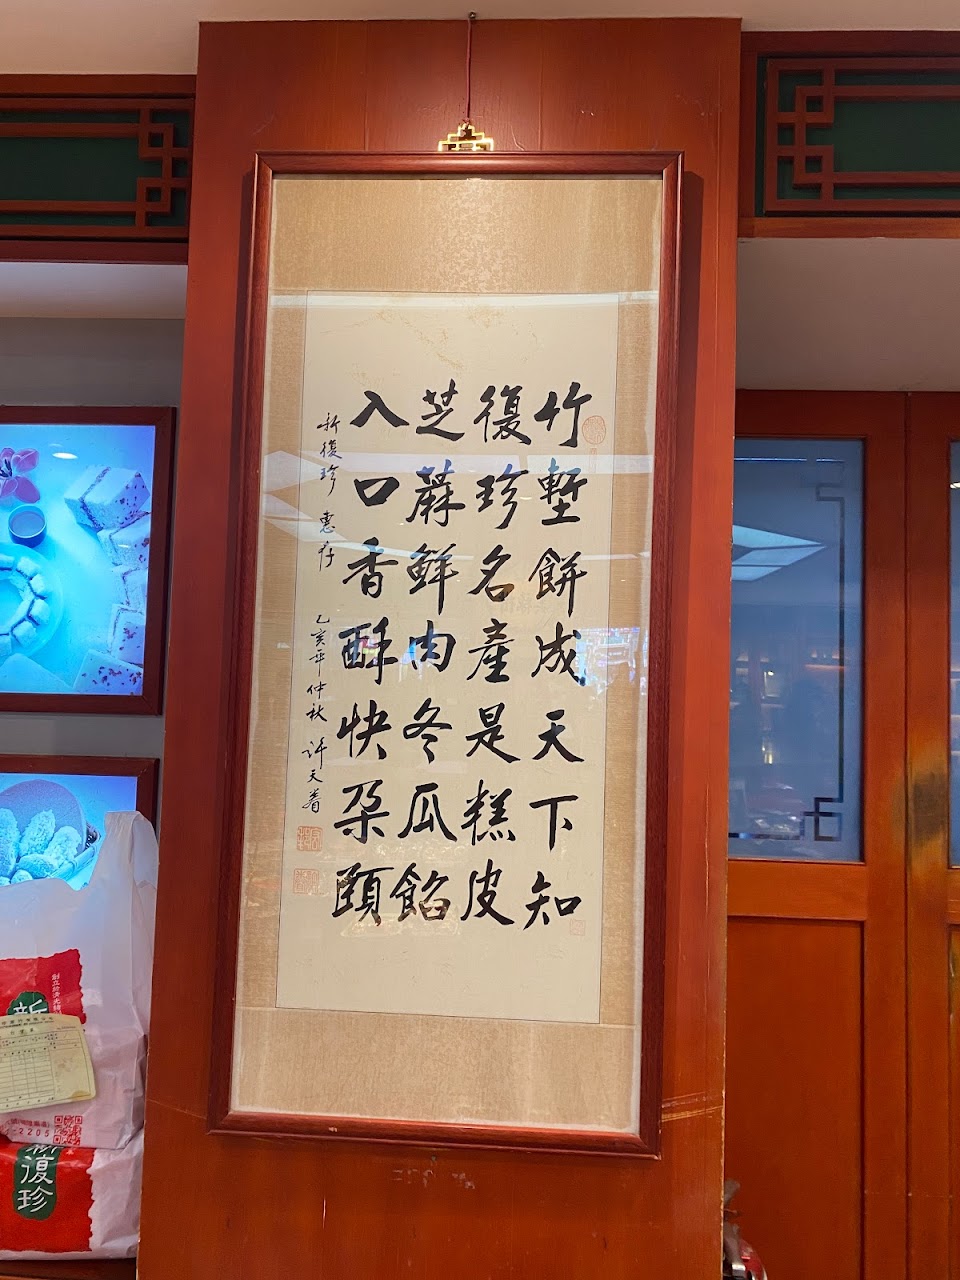 竹塹餅成天下知
復珍名產是糕皮
芝蔴鮮肉冬瓜餡
入口香酥快朶頤
新復珍 惠存
乙亥年仲秋 許天着
新
2205
新復珍